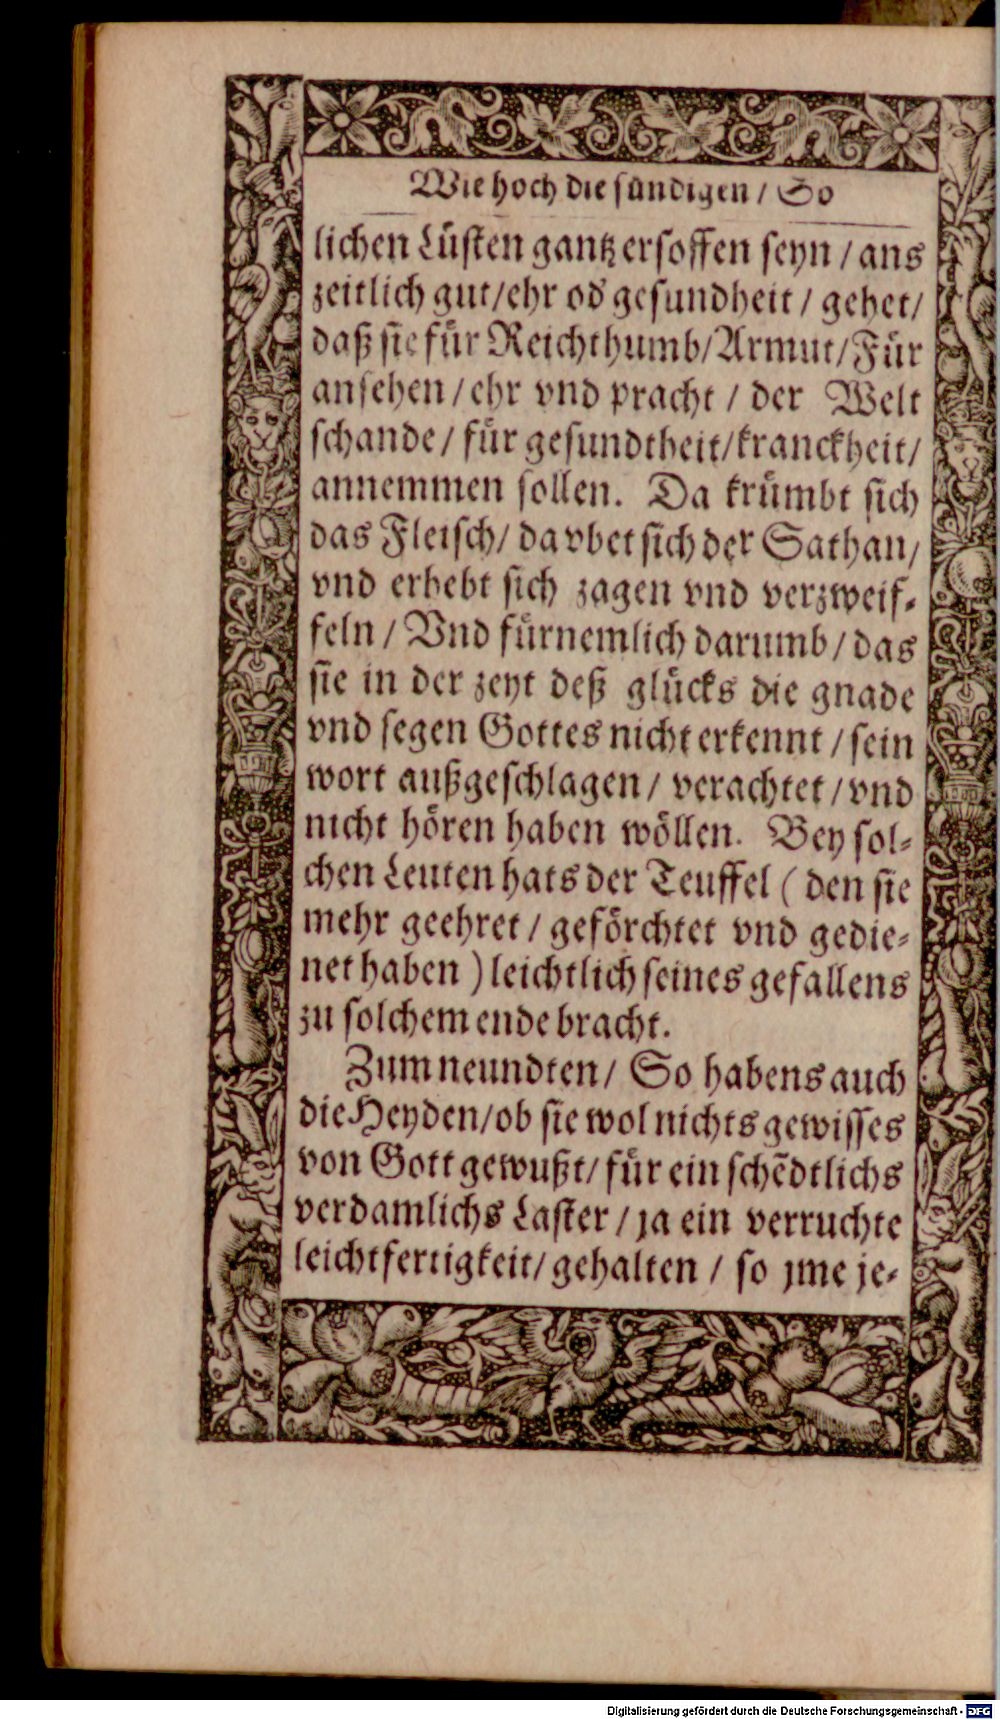 Wie hoch die sündigen / So
lichen Lüsten gantz ersoffen seyn / ans
zeitlich gut/ehr od gesundheit / gehet/
daß sie für Reichthumb/Armut/Für
ansehen / ehr vnd pracht / der Welt
schande / für gesundtheit/kranckheit/
annemmen sollen. Da krümbt sich
das Fleisch/ da vbet sich der Sathan/
vnd erhebt sich zagen vnd verzweif-
feln / Vnd fürnemlich darumb / das
sie in der zeyt deß glücks die gnade
vnd segen Gottes nicht erkennt / sein
wort außgeschlagen / verachtet / vnd
nicht hören haben wöllen. Bey sol-
chen Leuten hats der Teuffel ( den sie
mehr geehret / geförchtet vnd gedie-
net haben ) leichtlich seines gefallens
zu solchem ende bracht.
Zum neundten / So habens auch
die Heyden/ob sie wol nichts gewisses
von Gott gewußt/ für ein schẽdtlichs
verdamlichs Laster / ja ein verruchte
leichtfertigkeit/ gehalten / so jme je-
Digitalisierung gefördert durch die Deutsche Forschungsgemeinschaft - DFG